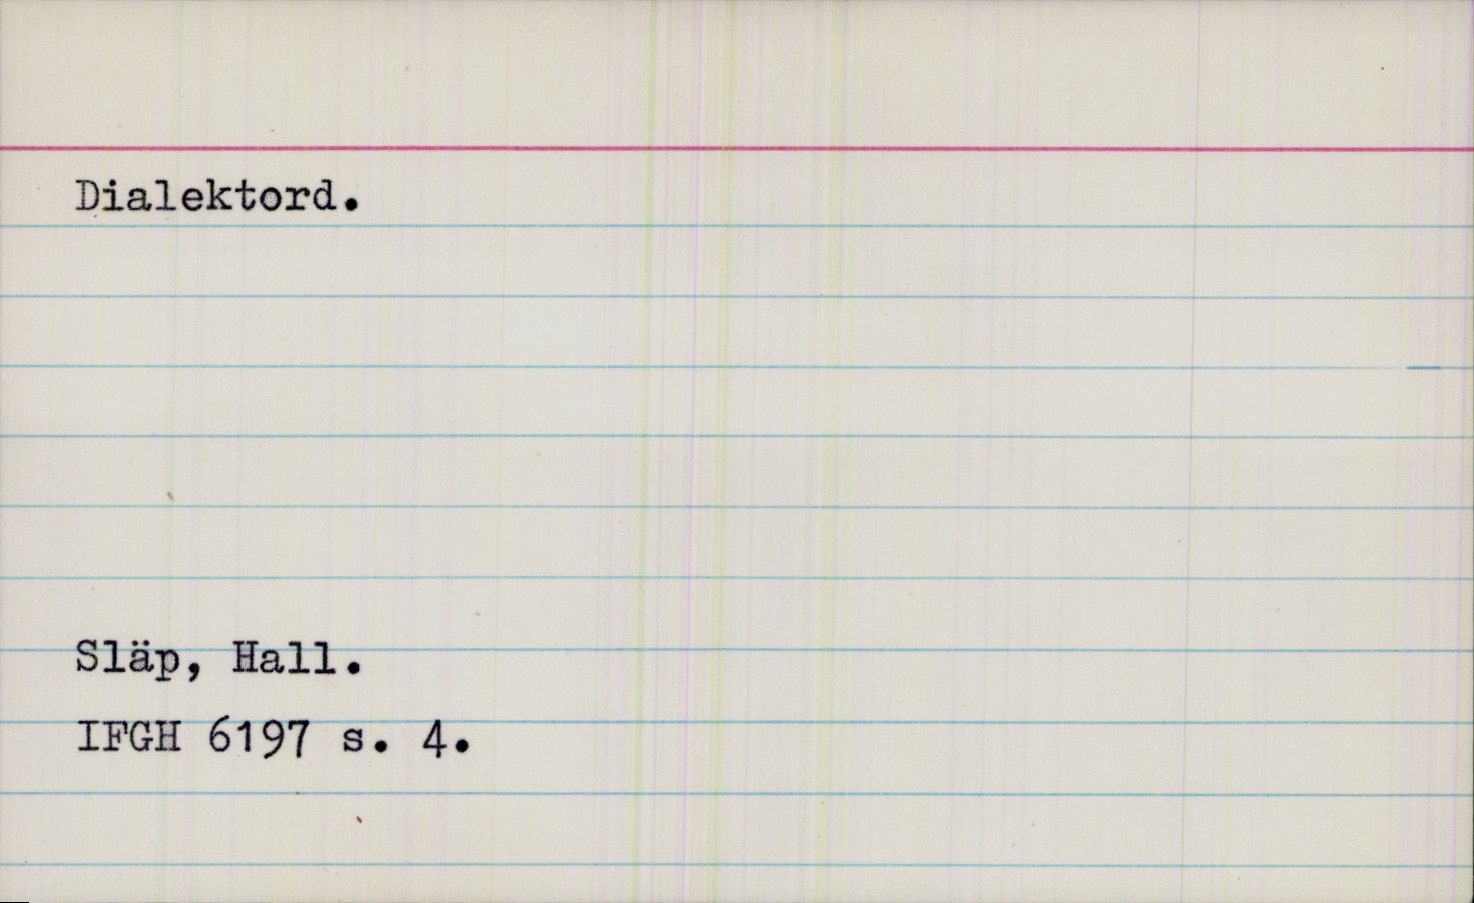 Dialektord.
Släp, Hall.
IFGH 6197 s. 4.